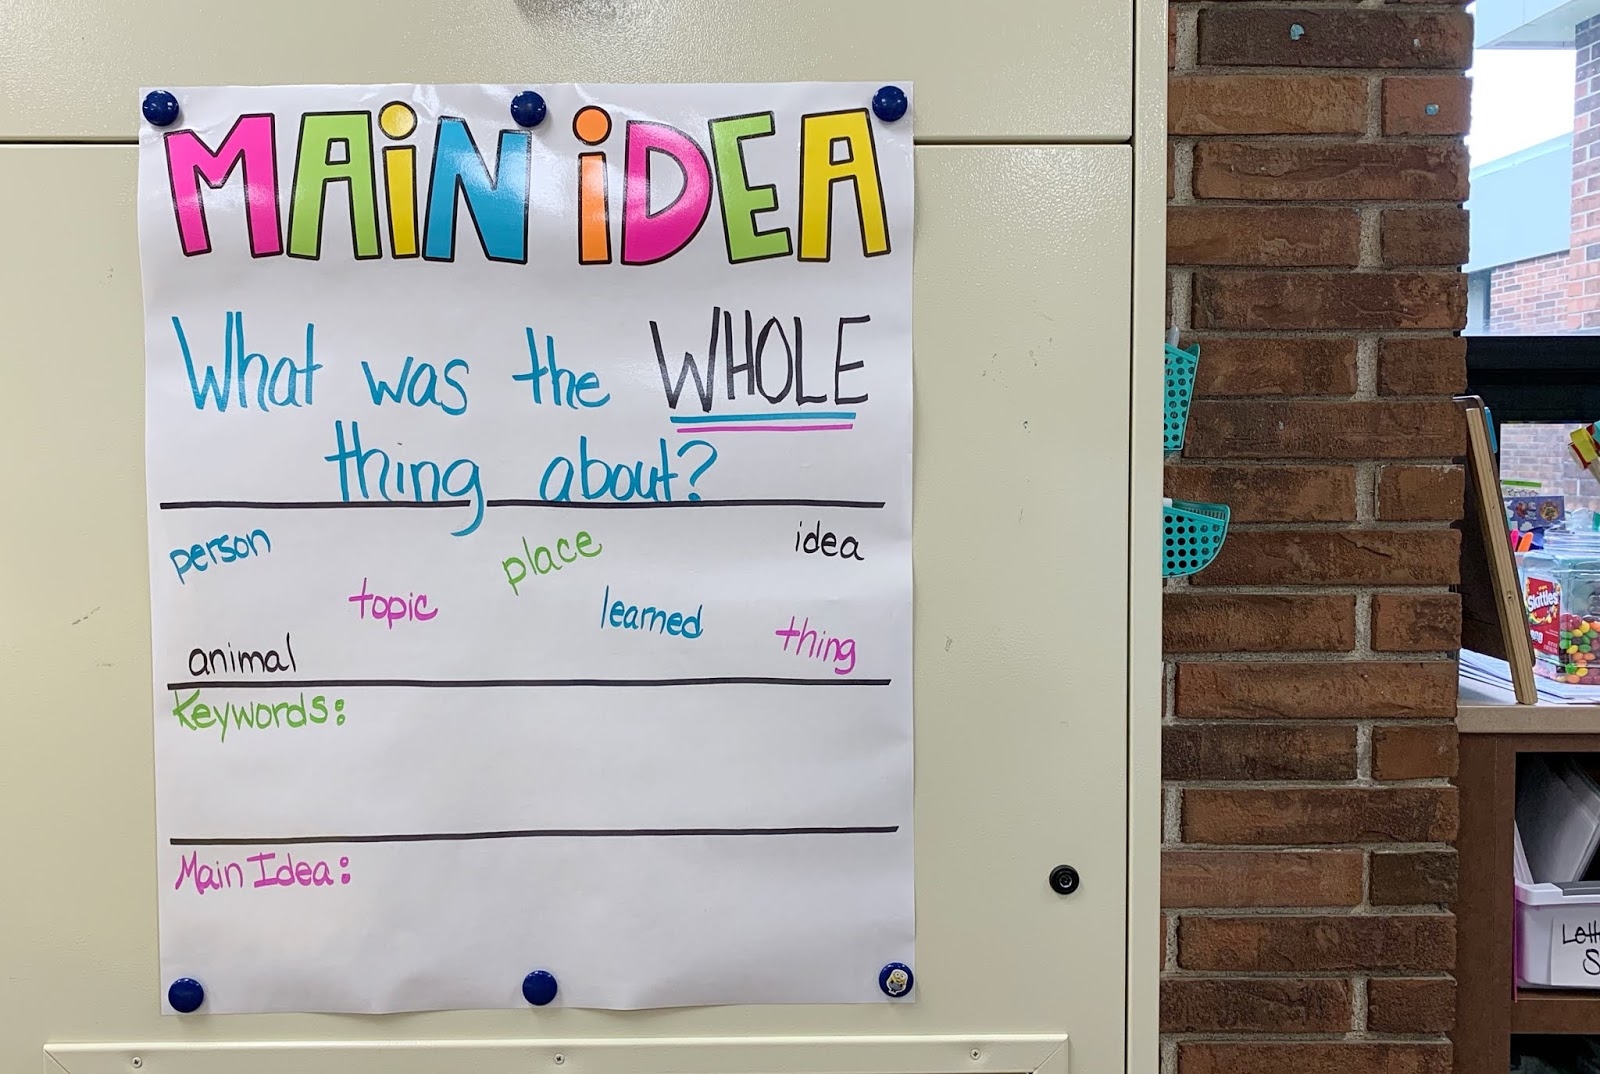 MAiN iDEA
What was the WHOLE
thing about?
person place idea
topic learned thing
animal
Keywords:
Main Idea:
Skittles